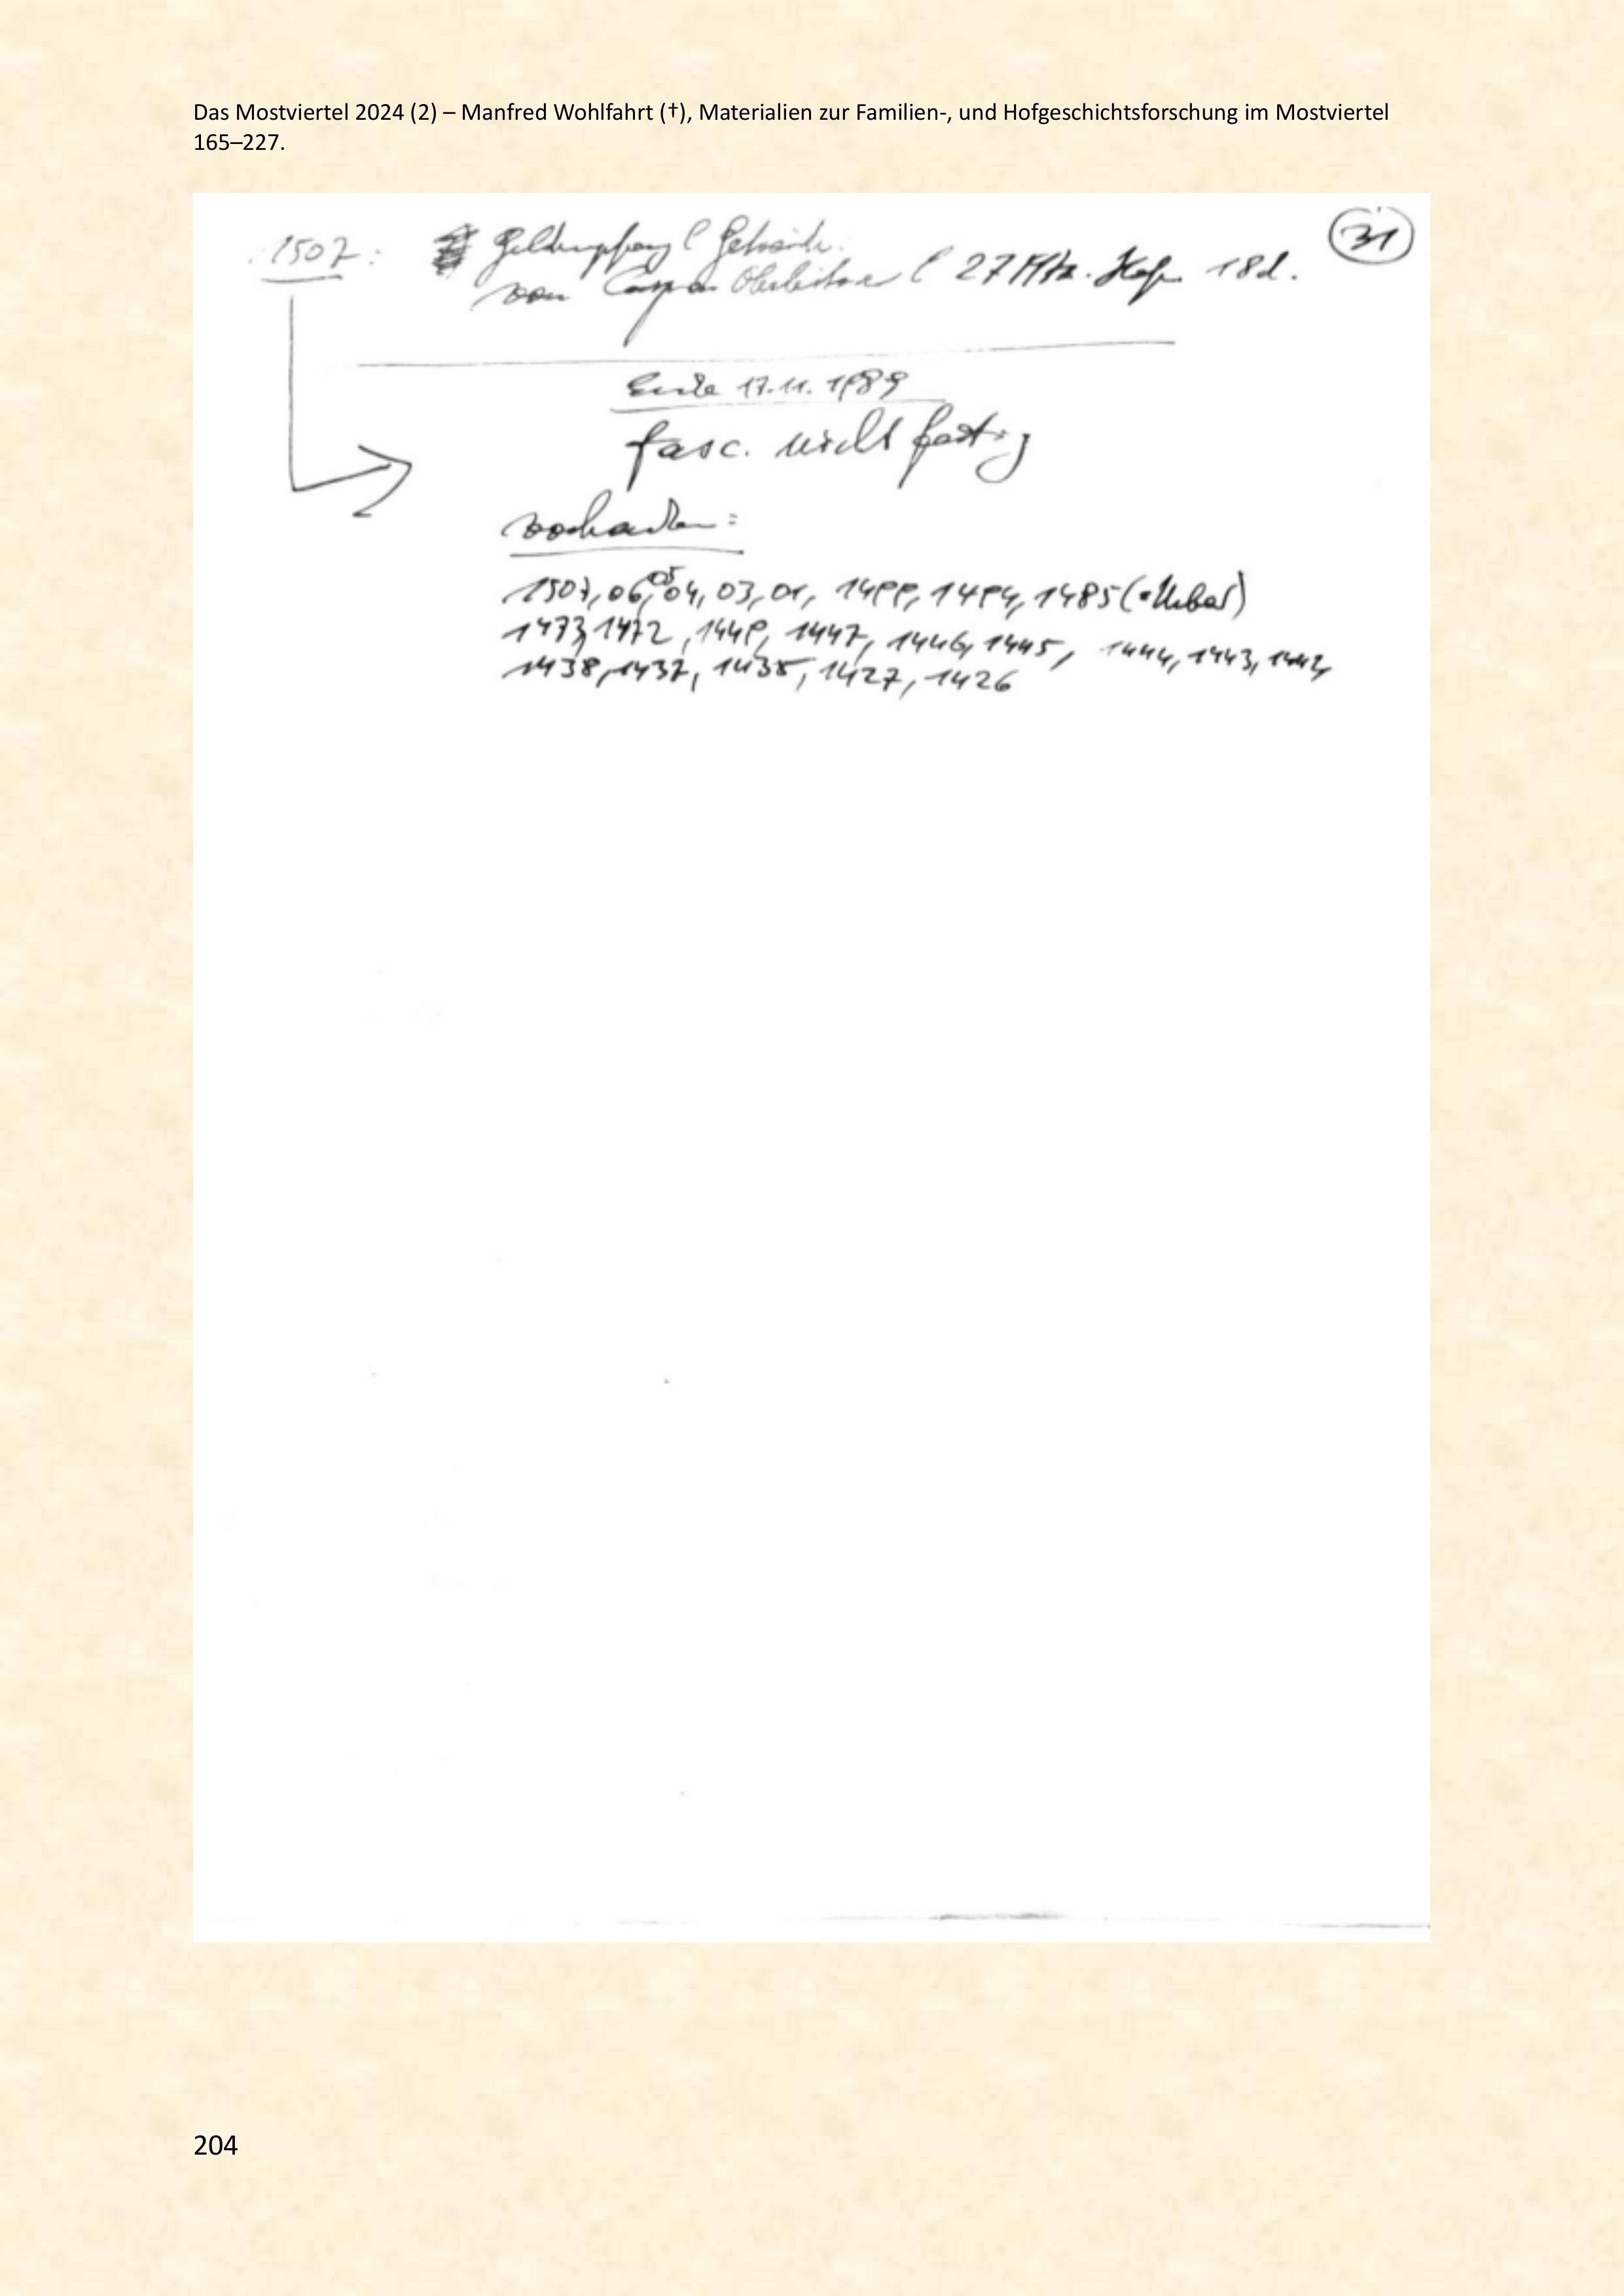 Das Mostviertel 2024 (2) – Manfred Wohlfahrt (†), Materialien zur Familien-, und Hofgeschichtsforschung im Mostviertel
165–227.
31
1507: Geldempfang Getraide.
von Caspar Oberleitner 27 Mtz. Hafer 18d.
Ende 17.11.1989
fasc. nicht fertig
vorhanden:
1507, 06, 05 04, 03, 01, 1499, 1494, 1485 (=Urbar)
1473, 1472, 1449, 1447, 1446, 1445, 1444, 1443, 1442,
1438, 1437, 1435, 1427, 1426
204